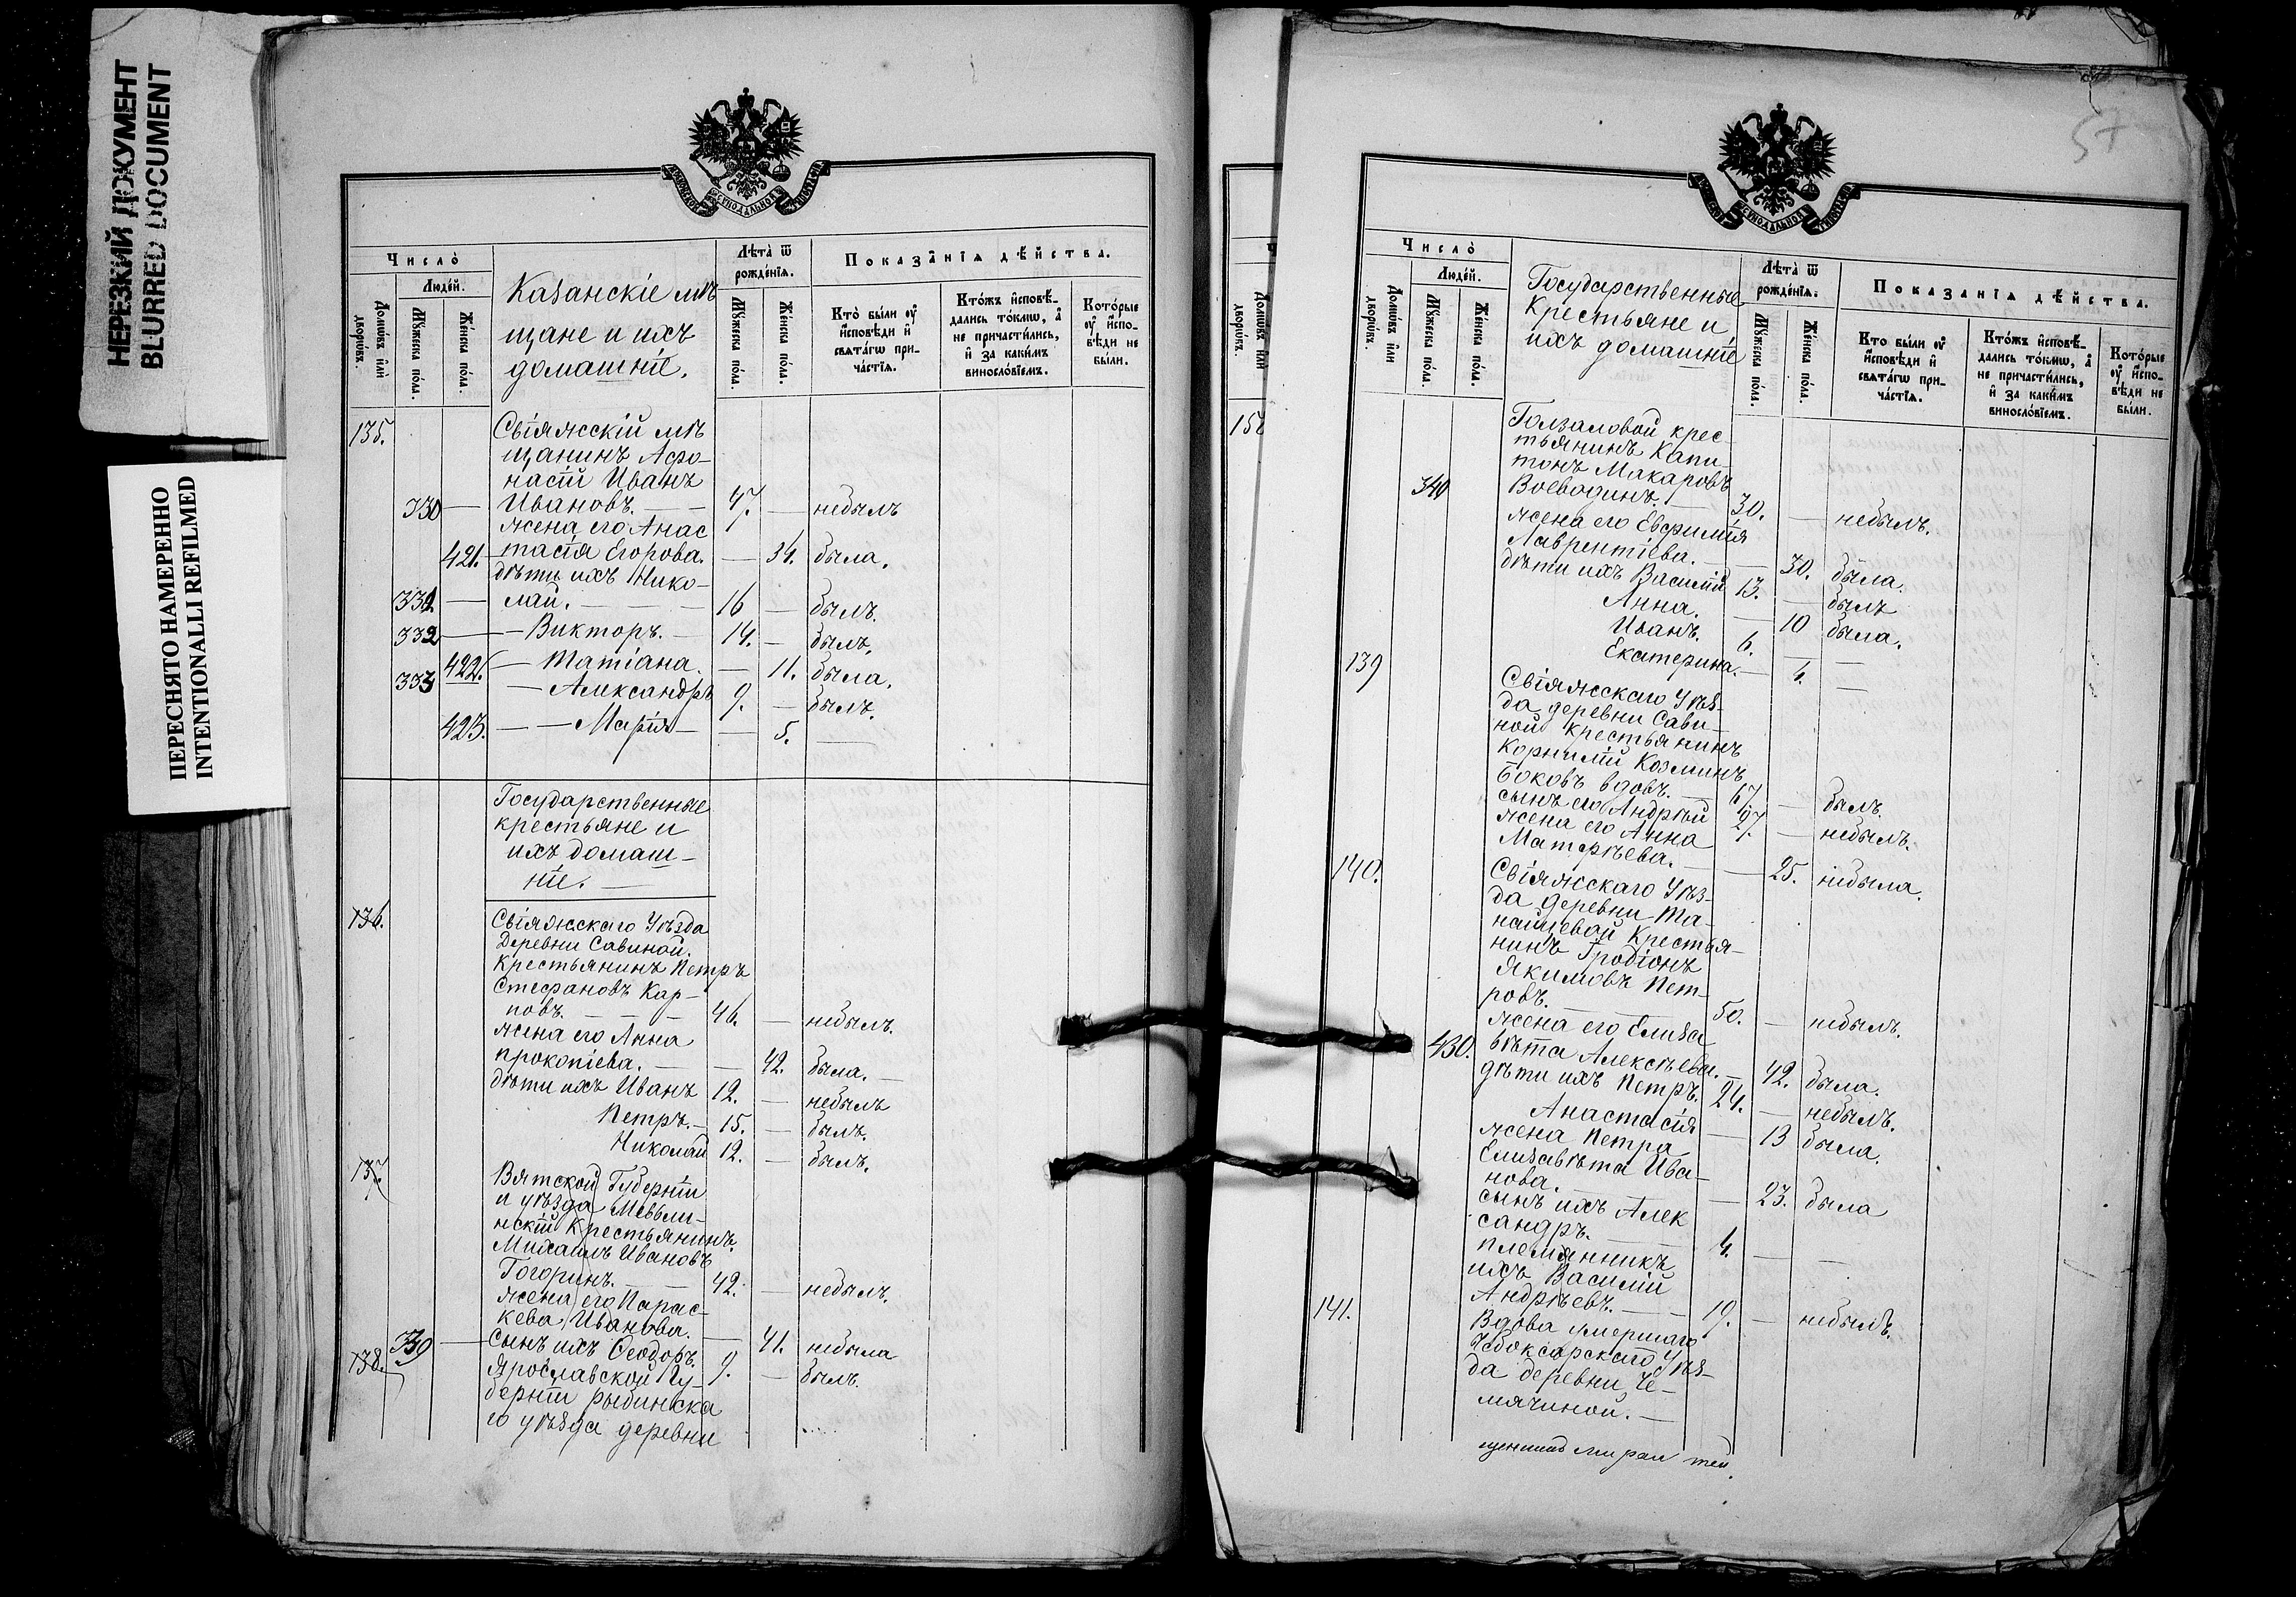 НЕРЕЗКИЙ ДОКУМЕНТ
BLURRED DOCUMENT
ПЕРЕСНЯТО НАМЕРЕННО
INTENTIONALLI REFILMED
Число̀
Люде́й.
Домѡ́въ и҆лѝ дворѡ́въ.
Мꙋ́жеска по́ла.
Же́нска по́ла.
Казанскіе мѣ
щане и ихъ
домашніе.
Лѣ́та ѿ рожде́нїѧ.
Мꙋ́жеска по́ла.
Же́нска по́ла.
Показа̑нїѧ дѣ́йства.
Кто̀ бы́ли ᲂу҆ и҆сповѣ́ди и҆ свѧта́гѡ прича́стїѧ.
Кто́жъ и҆сповѣ́дались то́кмѡ, а҆ не причасти́лись, и҆ за каки́мъ виносло́вїемъ.
Кото́рые ᲂу҆ и҆сповѣ́ди не бы́ли.
135. Свіяжскій мѣ
щанинъ Афо-
насій Иванъ
330 — Ивановъ. — — 47. — небылъ
жена его Анас
421. тасія Егорова. — 34. была.
дѣти ихъ Нико-
331. — лай. — — — 16 — былъ.
332 — — Викторъ. — 14. — былъ.
422. — Татіана. — 11. была.
333 — Александръ 9. — былъ.
423. — — Марія — — 5. —
Государственные
крестьяне и
ихъ домаш-
ніе. —
136. Свіяжскаго Уѣзда
Деревни Савиной.
Крестьянинъ Петръ
Стефановъ Кар-
повъ. — — — 46. — небылъ.
жена его Анна
прокопіева. — — 42. была. —
дѣти ихъ Иванъ 12. — небылъ
Петръ. — 15. — былъ.
Николай 12. — былъ.
137. Вятской Губерніи
и уѣзда
Крестьянинъ.
Михаилъ Ивановъ
Гогоринъ. — — 42. — небылъ.
жена его Парас-
кева Иванова. — 41. небыла
339 — сынъ ихъ Ѳеодоръ. 9. — былъ.
138. Ярославской Гу-
берніи рыбинска
го уѣзда деревни
57
Число̀
Люде́й.
Домѡ́въ и҆лѝ дворѡ́въ.
Мꙋ́жеска по́ла.
Же́нска по́ла.
Государственные
Крестьяне и
ихъ домашніе
Лѣ́та ѿ рожде́нїѧ.
Мꙋ́жеска по́ла.
Же́нска по́ла.
Показа̑нїѧ дѣ́йства.
Кто̀ бы́ли ᲂу҆ и҆сповѣ́ди и҆ свѧта́гѡ прича́стїѧ.
Кто́жъ и҆сповѣ́дались то́кмѡ, а҆ не причасти́лись, и҆ за каки́мъ виносло́вїемъ.
Кото́рые ᲂу҆ и҆сповѣ́ди не бы́ли.
Голзаловой крес-
тьянинъ Капи-
тонъ Макаровъ
340 Воеводинъ. — 30. — небылъ.
жена его Евфимія
Лаврентіева. — — 30. была.
дѣти ихъ Василій 13. — былъ
Анна. — 10 была.
Иванъ. 6. — —
Екатерина. — 4. —
139 Свіяжскаго Уѣз-
да деревни Сави-
ной крестьянинъ
Корнилій Козминъ
Боковъ вдовъ. — 67 — былъ.
сынъ его Андрѣй 27. — небылъ.
жена его Анна
Матѳѣева. — — 25. небыла.
140. Свіяжскаго Уѣз-
да деревни Та-
наишевой Крестья-
нинъ Іродіонъ
Якимовъ Пет-
ровъ. — — 50. — небылъ.
жена его Елиза
430. вѣта Алексѣева. — 42. была.
дѣти ихъ Петръ. 24. — небылъ.
Анастасія — 13 была.
жена Петра
Елизавѣта Ива-
нова. — — 23. была
сынъ ихъ Алек
сандръ. — — 4. — —
племянникъ
ихъ Василій
Андрѣевъ. — — 19. — небылъ.
141. Вдова умершаго
Чебоксарскаго Уѣз-
да деревни Че-
мячиной. —